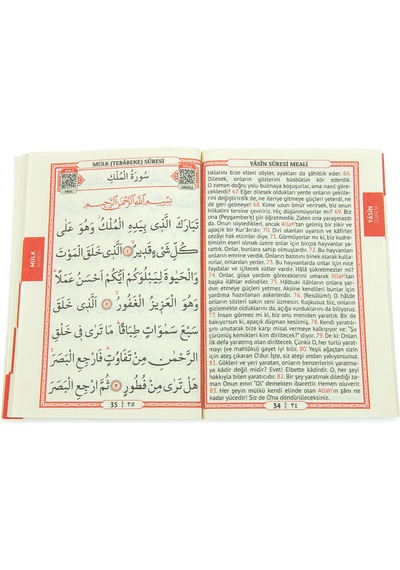 YÂSÎN SÛRESİ MEALİ
tıklarını bize elleri söyler, ayakları da şâhitlik eder. 66.
Dilesek, onların gözlerini büsbütün kör ederdik.
O zaman doğru yolu bulmaya koşuşurlar, ama nasıl göre-
ceklerdi? 67. Eğer dilesek oldukları yerde onların şekille-
rini değiştirirdik de, ne ileriye gitmeye güçleri yeterdi, ne
de geri gelmeye! 68. Kime uzun ömür verirsek, biz onun
hilkatini tersine çeviririz. Hiç düşünmüyorlar mı? 69. Biz
ona (Peygamber'e) şiir öğretmedik. Zaten ona yaraşmaz-
da. Onun söyledikleri, ancak Allah'tan gelmiş bir zikir ve
apaçık bir Kur'ân'dır. 70. Diri olanları uyarsın ve kâfirler
cezayı hak etsinler diye. 71. Görmüyorlar mı ki, biz kudre-
timizin eseri olmak üzere onlar için birçok hayvanlar yarat-
tık. Onlar, bunlara sahip olmuşlardır. 72. Bu hayvanları
onların emrine verdik. Onların bazısını binek olarak kulla-
nırlar, onlardan yerler. 73. Bu hayvanlarda onlar için nice
faydalar ve içilecek sütler vardır. Hâlâ şükretmezler mi?
74. Onlar, güya yardım göreceklerini umarak Allah'tan
başka ilâhlar edindiler. 75. Hâlbuki ilâhların onlara yar-
dım etmeye güçleri yetmez. Aksine kendileri bunlar için
yardıma hazırlanan askerlerdir. 76. (Resûlüm!) O hâlde
onların sözleri sakın seni üzmesin. Kuşkusuz biz, onların
gizlemekte olduklarını da, açığa vurduklarını da biliyoruz.
77. İnsan görmez mi ki, biz onu meniden yarattık. Bir de
bakıyorsun ki, apaçık düşman kesilmiş. 78. Kendi yaratılı-
şını unutarak bize karşı misal vermeye kalkışıyor ve: "Şu
çürümüş kemikleri kim diriltecek?" diyor. 79. De ki: Onları
ilk defa yaratmış olan diriltecek. Çünkü O, her türlü yarat-
mayı (ve mahlûku) gayet iyi bilir. 80. Yeşil ağaçtan sizin
için ateş çıkaran O'dur. İşte, siz ateşi ondan yakıyorsunuz.
81. Gökleri ve yeri yaratan, onların benzerlerini yaratma-
ya kâdir değil midir? Evet! Elbette kâdirdir. O, her şeyi
hakkıyla bilen yaratıcıdır. 82. Bir şey yaratmak dilediği za-
man Onun emri "Ol" demekten ibarettir. Hemen oluverir.
83. Her şeyin mülkü kendi elinde olan Allah'ın şânı ne
kadar yücedir! Siz de O'na döndürüleceksiniz.
34 ٣٤
YÂSÎN
MÜLK (TEBÂREKE) SÛRESİ
سُورَةُ الْمُلْكِ
بِسْمِ اللّٰهِ الرَّحْمٰنِ الرَّحِيمِ
تَبَارَكَ الَّذِي بِيَدِهِ الْمُلْكُ وَهُوَ عَلٰى
كُلِّ شَيْءٍ قَدِيرٌ ۝١ اَلَّذِي خَلَقَ الْمَوْتَ
وَالْحَيٰوةَ لِيَبْلُوَكُمْ اَيُّكُمْ اَحْسَنُ عَمَلًا
وَهُوَ الْعَزِيزُ الْغَفُورُ ۝٢ اَلَّذِي خَلَقَ
سَبْعَ سَمٰوَاتٍ طِبَاقًا مَا تَرٰى فِي خَلْقِ
الرَّحْمٰنِ مِنْ تَفَاوُتٍ فَارْجِعِ الْبَصَرَ
هَلْ تَرٰى مِنْ فُطُورٍ ۝٣ ثُمَّ ارْجِعِ الْبَصَرَ
35 ٣٥
MÜLK